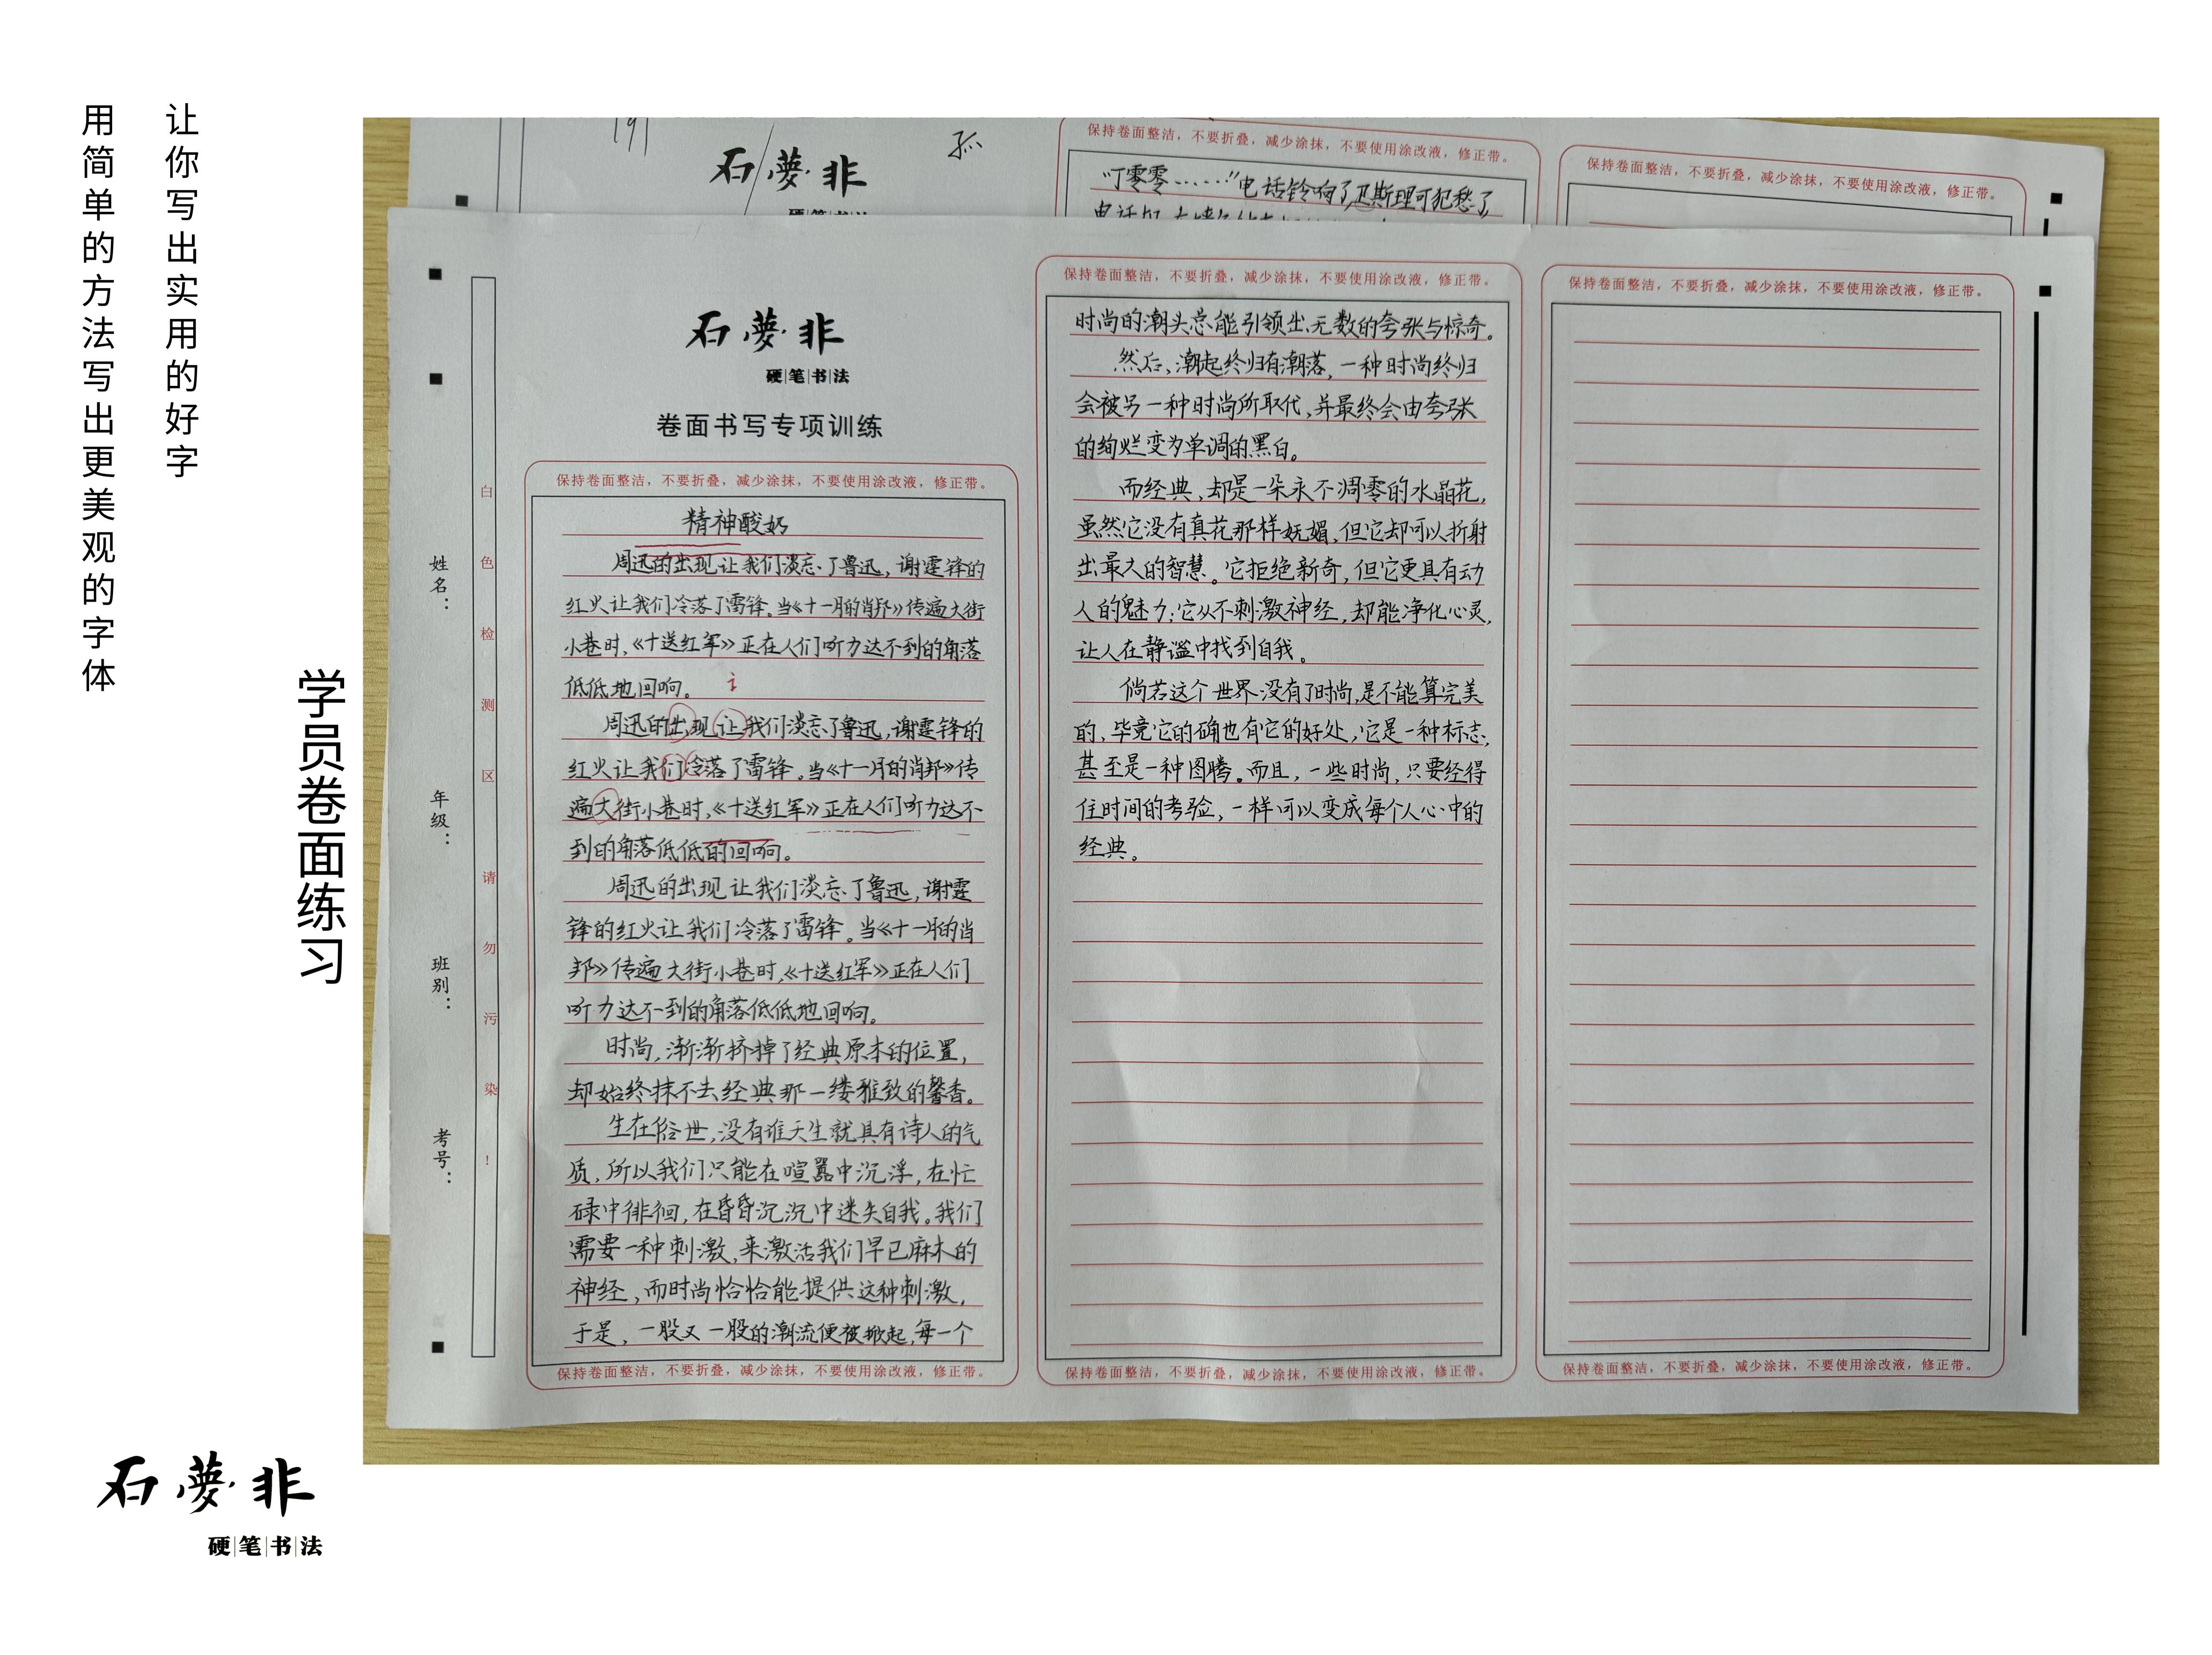 让你写出实用的好字
用简单的方法写出更美观的字体
学员卷面练习
石夢非
硬|笔|书|法
石夢非
孤
保持卷面整洁，不要折叠，减少涂抹，不要使用涂改液，修正带。
“叮零零……”电话铃响了,卫斯理可犯愁了
保持卷面整洁，不要折叠，减少涂抹，不要使用涂改液，修正带。
白色检测区 请勿污染！
姓名：
年级：
班别：
考号：
石夢非
硬|笔|书|法
卷面书写专项训练
保持卷面整洁，不要折叠，减少涂抹，不要使用涂改液，修正带。
精神酸奶
周迅的出现让我们淡忘了鲁迅，谢霆锋的
红火让我们冷落了雷锋。当《十一月的肖邦》传遍大街
小巷时，《十送红军》正在人们听力达不到的角落
低低地回响。
周迅的出现让我们淡忘了鲁迅，谢霆锋的
红火让我们冷落了雷锋。当《十一月的肖邦》传
遍大街小巷时，《十送红军》正在人们听力达不
到的角落低低的回响。
周迅的出现让我们淡忘了鲁迅，谢霆
锋的红火让我们冷落了雷锋。当《十一月的肖
邦》传遍大街小巷时，《十送红军》正在人们
听力达不到的角落低低地回响。
时尚，渐渐挤掉了经典原本的位置，
却始终抹不去经典那一缕雅致的馨香。
生在俗世，没有谁天生就具有诗人的气
质，所以我们只能在喧嚣中沉浮，在忙
碌中徘徊，在昏昏沉沉中迷失自我。我们
需要一种刺激，来激活我们早已麻木的
神经，而时尚恰恰能提供这种刺激，
于是，一股又一股的潮流便被掀起，每一个
保持卷面整洁，不要折叠，减少涂抹，不要使用涂改液，修正带。
保持卷面整洁，不要折叠，减少涂抹，不要使用涂改液，修正带。
时尚的潮头总能引领出无数的夸张与惊奇。
然后，潮起终归有潮落，一种时尚终归
会被另一种时尚所取代，并最终会由夸张
的绚烂变为单调的黑白。
而经典，却是一朵永不凋零的水晶花，
虽然它没有真花那样妩媚，但它却可以折射
出最大的智慧。它拒绝新奇，但它更具有动
人的魅力；它从不刺激神经，却能净化心灵，
让人在静谧中找到自我。
倘若这个世界没有了时尚，是不能算完美
的，毕竟它的确也有它的好处，它是一种标志，
甚至是一种图腾。而且，一些时尚，只要经得
住时间的考验，一样可以变成每个人心中的
经典。
保持卷面整洁，不要折叠，减少涂抹，不要使用涂改液，修正带。
保持卷面整洁，不要折叠，减少涂抹，不要使用涂改液，修正带。
保持卷面整洁，不要折叠，减少涂抹，不要使用涂改液，修正带。